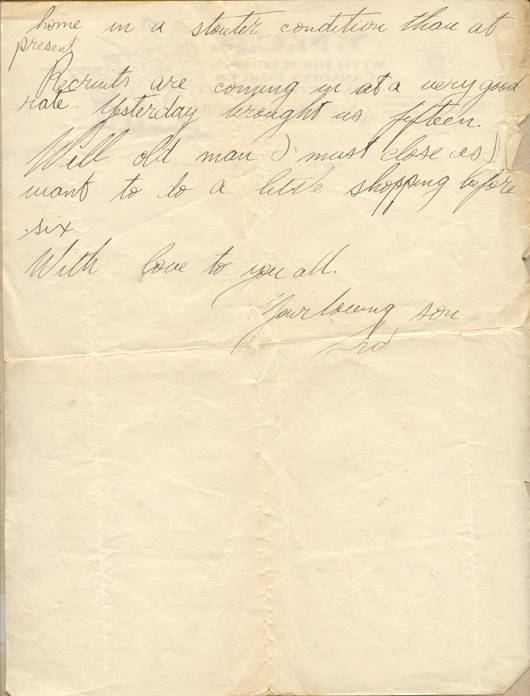 home in a stouter condition than at
present
Recruits are coming in at a very good
rate. Yesterday brought us fifteen.
Well old man I must close as I
want to do a little shopping before
six
With love to you all.
Your loving son